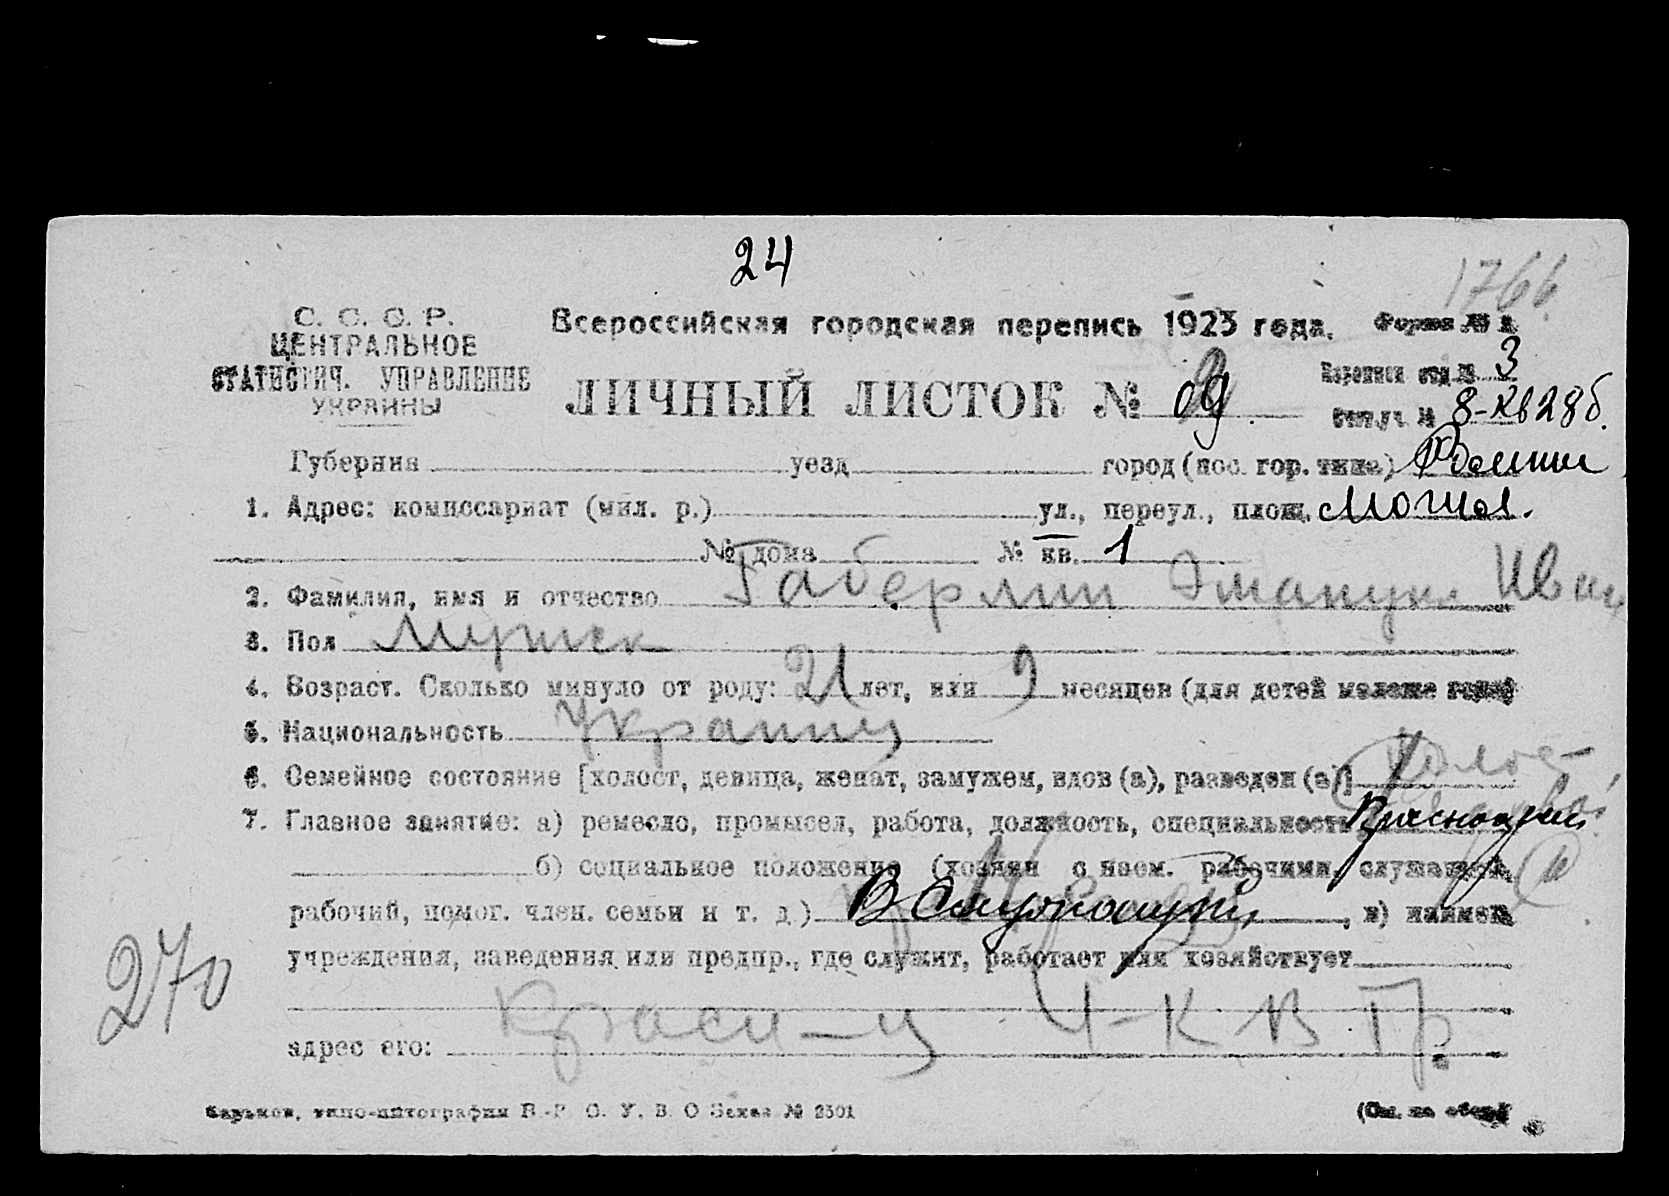 24
1766
С. С. С. Р.
ЦЕНТРАЛЬНОЕ
СТАТИСТИЧ. УПРАВЛЕНИЕ
УКРАИНЫ
Всероссийская городская перепись 1923 года.
Форма № 1.
ЛИЧНЫЙ ЛИСТОК № 09
Переписн отд № 3
Счетн. уч. № 8-кв 28б.
Губерния уезд город (пос. гор. типа) Ромны
1. Адрес: комиссариат (мил. р.) ул., переул., площ.
№ дома № кв. 1
2. Фамилия, имя и отчество Габерлин Эмануил Иван
3. Пол Мужск
4. Возраст. Сколько минуло от роду: 21 лет, или 9 месяцев (для детей моложе года)
5. Национальность Украинец
6. Семейное состояние [холост, девица, женат, замужем, вдов (а), разведен (а)] холост
7. Главное занятие: а) ремесло, промысел, работа, должность, специальность
б) социальное положение (хозяин с наем. рабочими, служащий,
рабочий, помог. член. семьи и т. д.) , в) наимен.
учреждения, заведения или предпр., где служит, работает или хозяйствует
270
адрес его:
Харьков, типо-литография В.-Р. О. У. В. О Заказ № 2501
(См. на обор.)